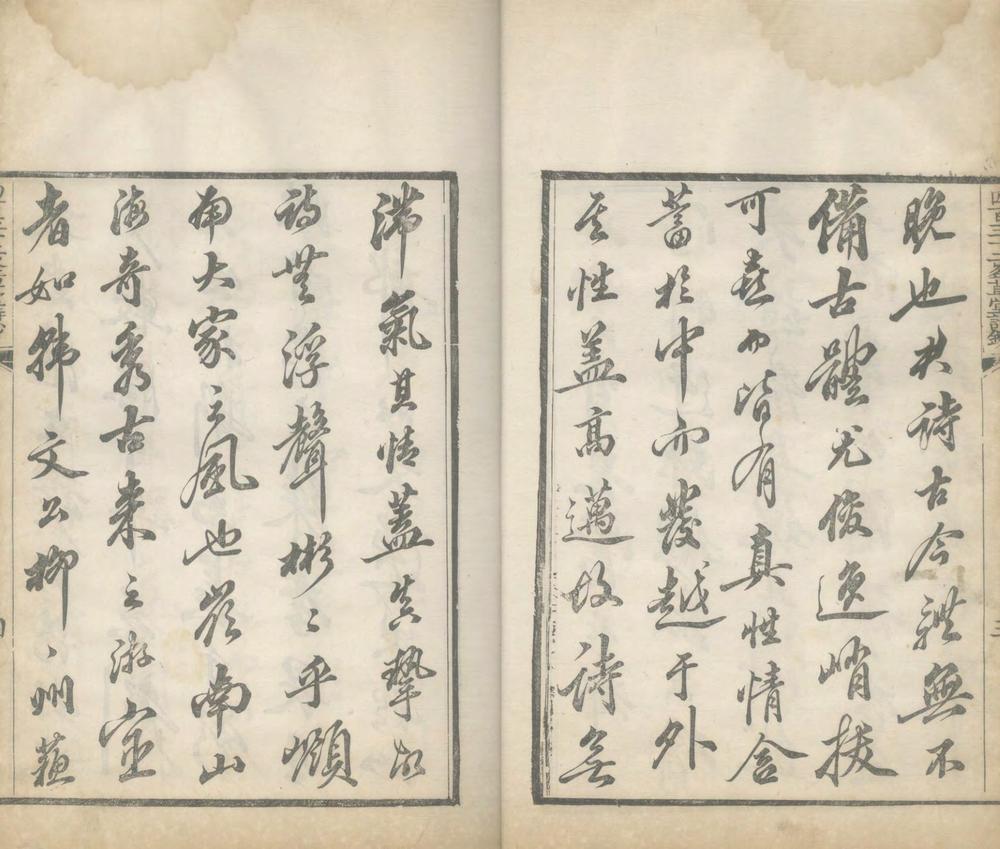 晚也其詩古今體無不
備古體尤俊逸峭拔
可喜而皆有真性情含
蓄於中而發越于外
其性蓋高邁故詩無
滯氣其情蓋真摯故
詩無浮聲彬〻乎頗
有大家之風也嶺南山
海奇秀古來之游宦
者如韓文公柳柳州蘇